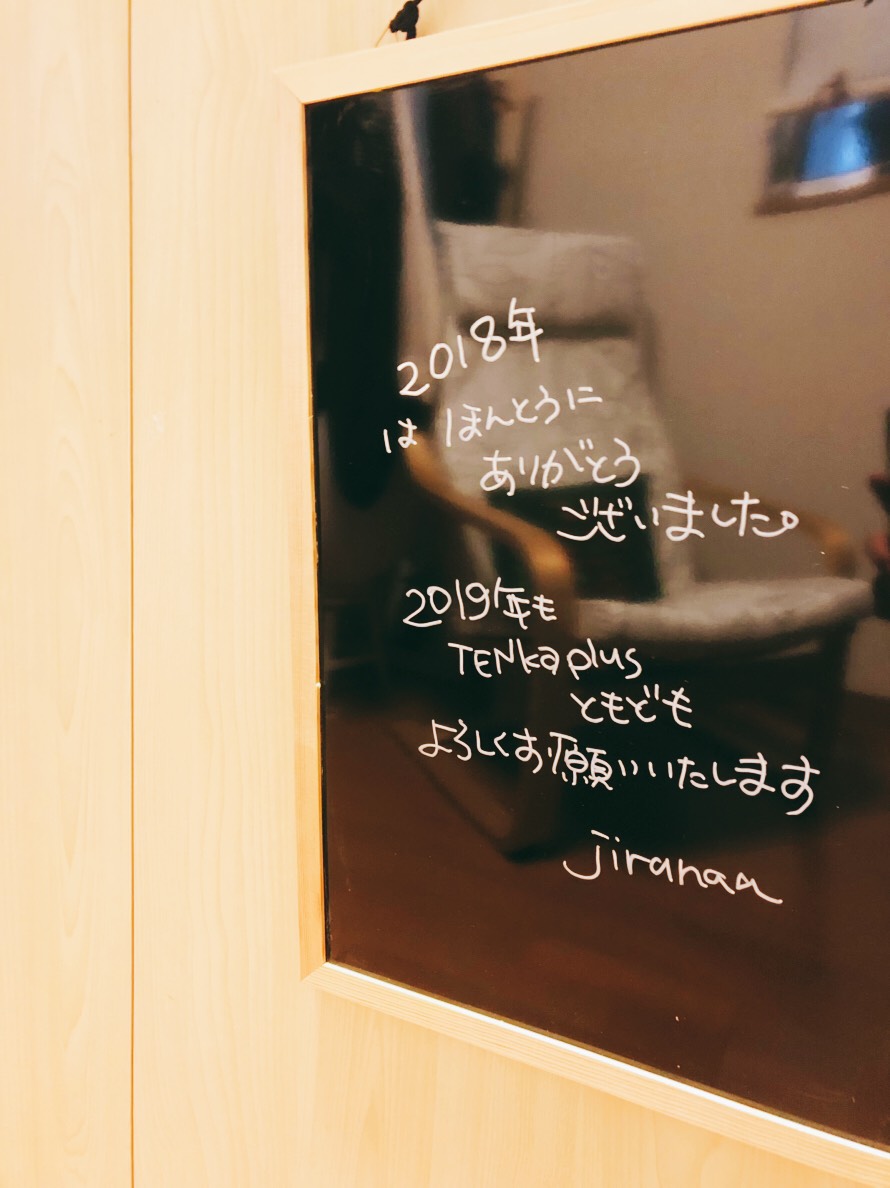 2018年
は ほんとうに
ありがとう
ございました。
2019年も
TENkaplus
ともども
よろしくお願いいたします
jiranaa